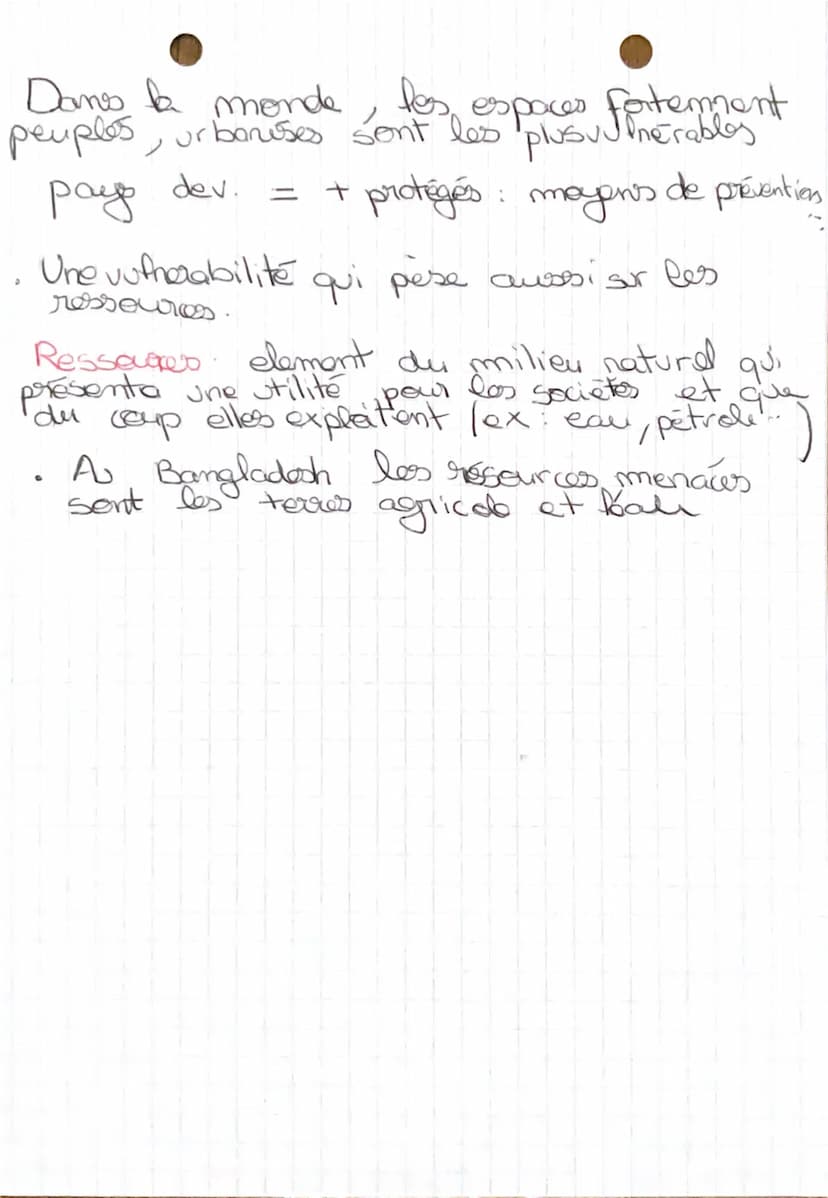 Dans la monde, les espaces fortemment
peuplés, urbanisés sont les plus vulnérables
pays dev. = + protégés : moyens de prévention...
. Une vulnérabilité qui pèse aussi sur les
ressources.
Ressources element du milieu naturel qui
présente une utilité pour les sociétés et que
du coup elles exploitent (ex : eau, pétrole...)
. Au Bangladesh les résources menacés
sont les terres agricole et l'eau